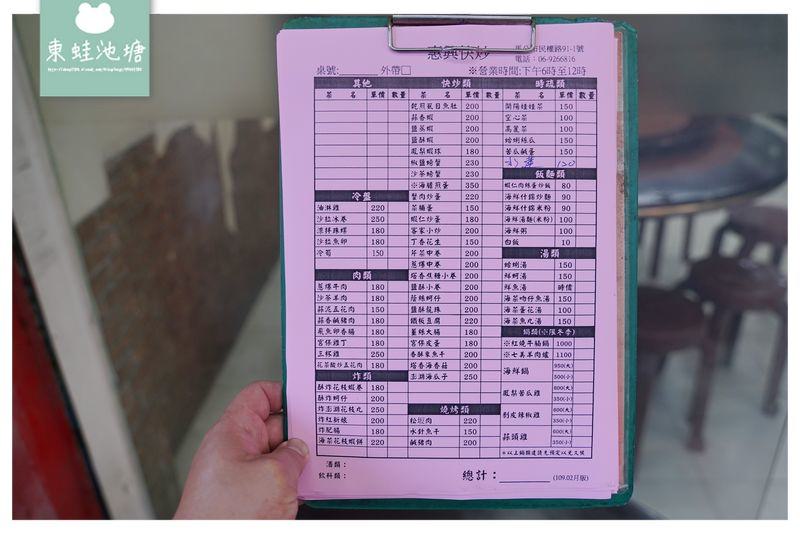 東蛙池塘
惠興快炒
馬公市民權路91-1號
電話：06-9266816
桌號:______外帶□
※營業時間:下午6時至12時
其他
菜 名 單價 數量
冷盤
油淋雞 220
沙拉冰卷 250
涼拌珠螺 180
沙拉魚卵 180
冷筍 150
肉類
蔥爆牛肉 180
沙茶羊肉 180
蒜泥五花肉 150
蒜香鹹豬肉 180
飛魚卵香腸 180
宮保雞丁 180
三杯雞 250
花菜酸炒五花肉 180
炸類
酥炸花枝蝦卷 200
酥炸蚵仔 200
炸澎湖花枝丸 250
炸紅新娘 200
炸肥腸 180
海菜花枝蝦餅 220
快炒類
菜 名 單價 數量
乾煎虱目魚肚 200
蒜香蝦 200
鹽蒸蝦 200
鹽酥蝦 200
鳳梨蝦球 180
椒鹽螃蟹 230
沙茶螃蟹 230
※海膽煎蛋 350
蟹肉炒蛋 220
菜脯蛋 150
蝦仁炒蛋 180
客家小炒 200
丁香花生 150
芹菜中卷 200
蔥爆中卷 200
塔香焦糖小卷 200
鹽酥小卷 200
蔭豉蚵仔 200
鹽酥龍珠 200
鐵板豆腐 220
薑絲大腸 180
宮保皮蛋 180
香酥象魚干 200
塔香海香菇 200
澎湖海瓜子 250
燒烤類
松坂肉 220
水針魚干 150
鹹豬肉 200
時蔬類
菜 名 單價 數量
開陽娃娃菜 150
空心菜 100
高麗菜 100
蛤蜊絲瓜 150
苦瓜鹹蛋 150
水蓮 120
飯麵類
蝦仁肉絲蛋炒飯 80
海鮮什錦炒麵 90
海鮮什錦米粉 90
海鮮湯麵(米粉) 100
海鮮粥 100
白飯 10
湯類
蛤蜊湯 150
鮮蚵湯 150
鮮魚湯 時價
海菜吻仔魚湯 150
海菜蛋花湯 100
海菜魚丸湯 150
鍋類(小限冬季)
※紅燒牛腩鍋 1000
※七美羊肉爐 1100
海鮮鍋 950(大) 500(小)
鳳梨苦瓜雞 600(大) 350(小)
剝皮辣椒雞 600(大) 350(小)
蒜頭雞 600(大) 350(小)
※以上鍋類建議先預定以免久候
酒類：
飲料類：
總計：________ (109.02月版)